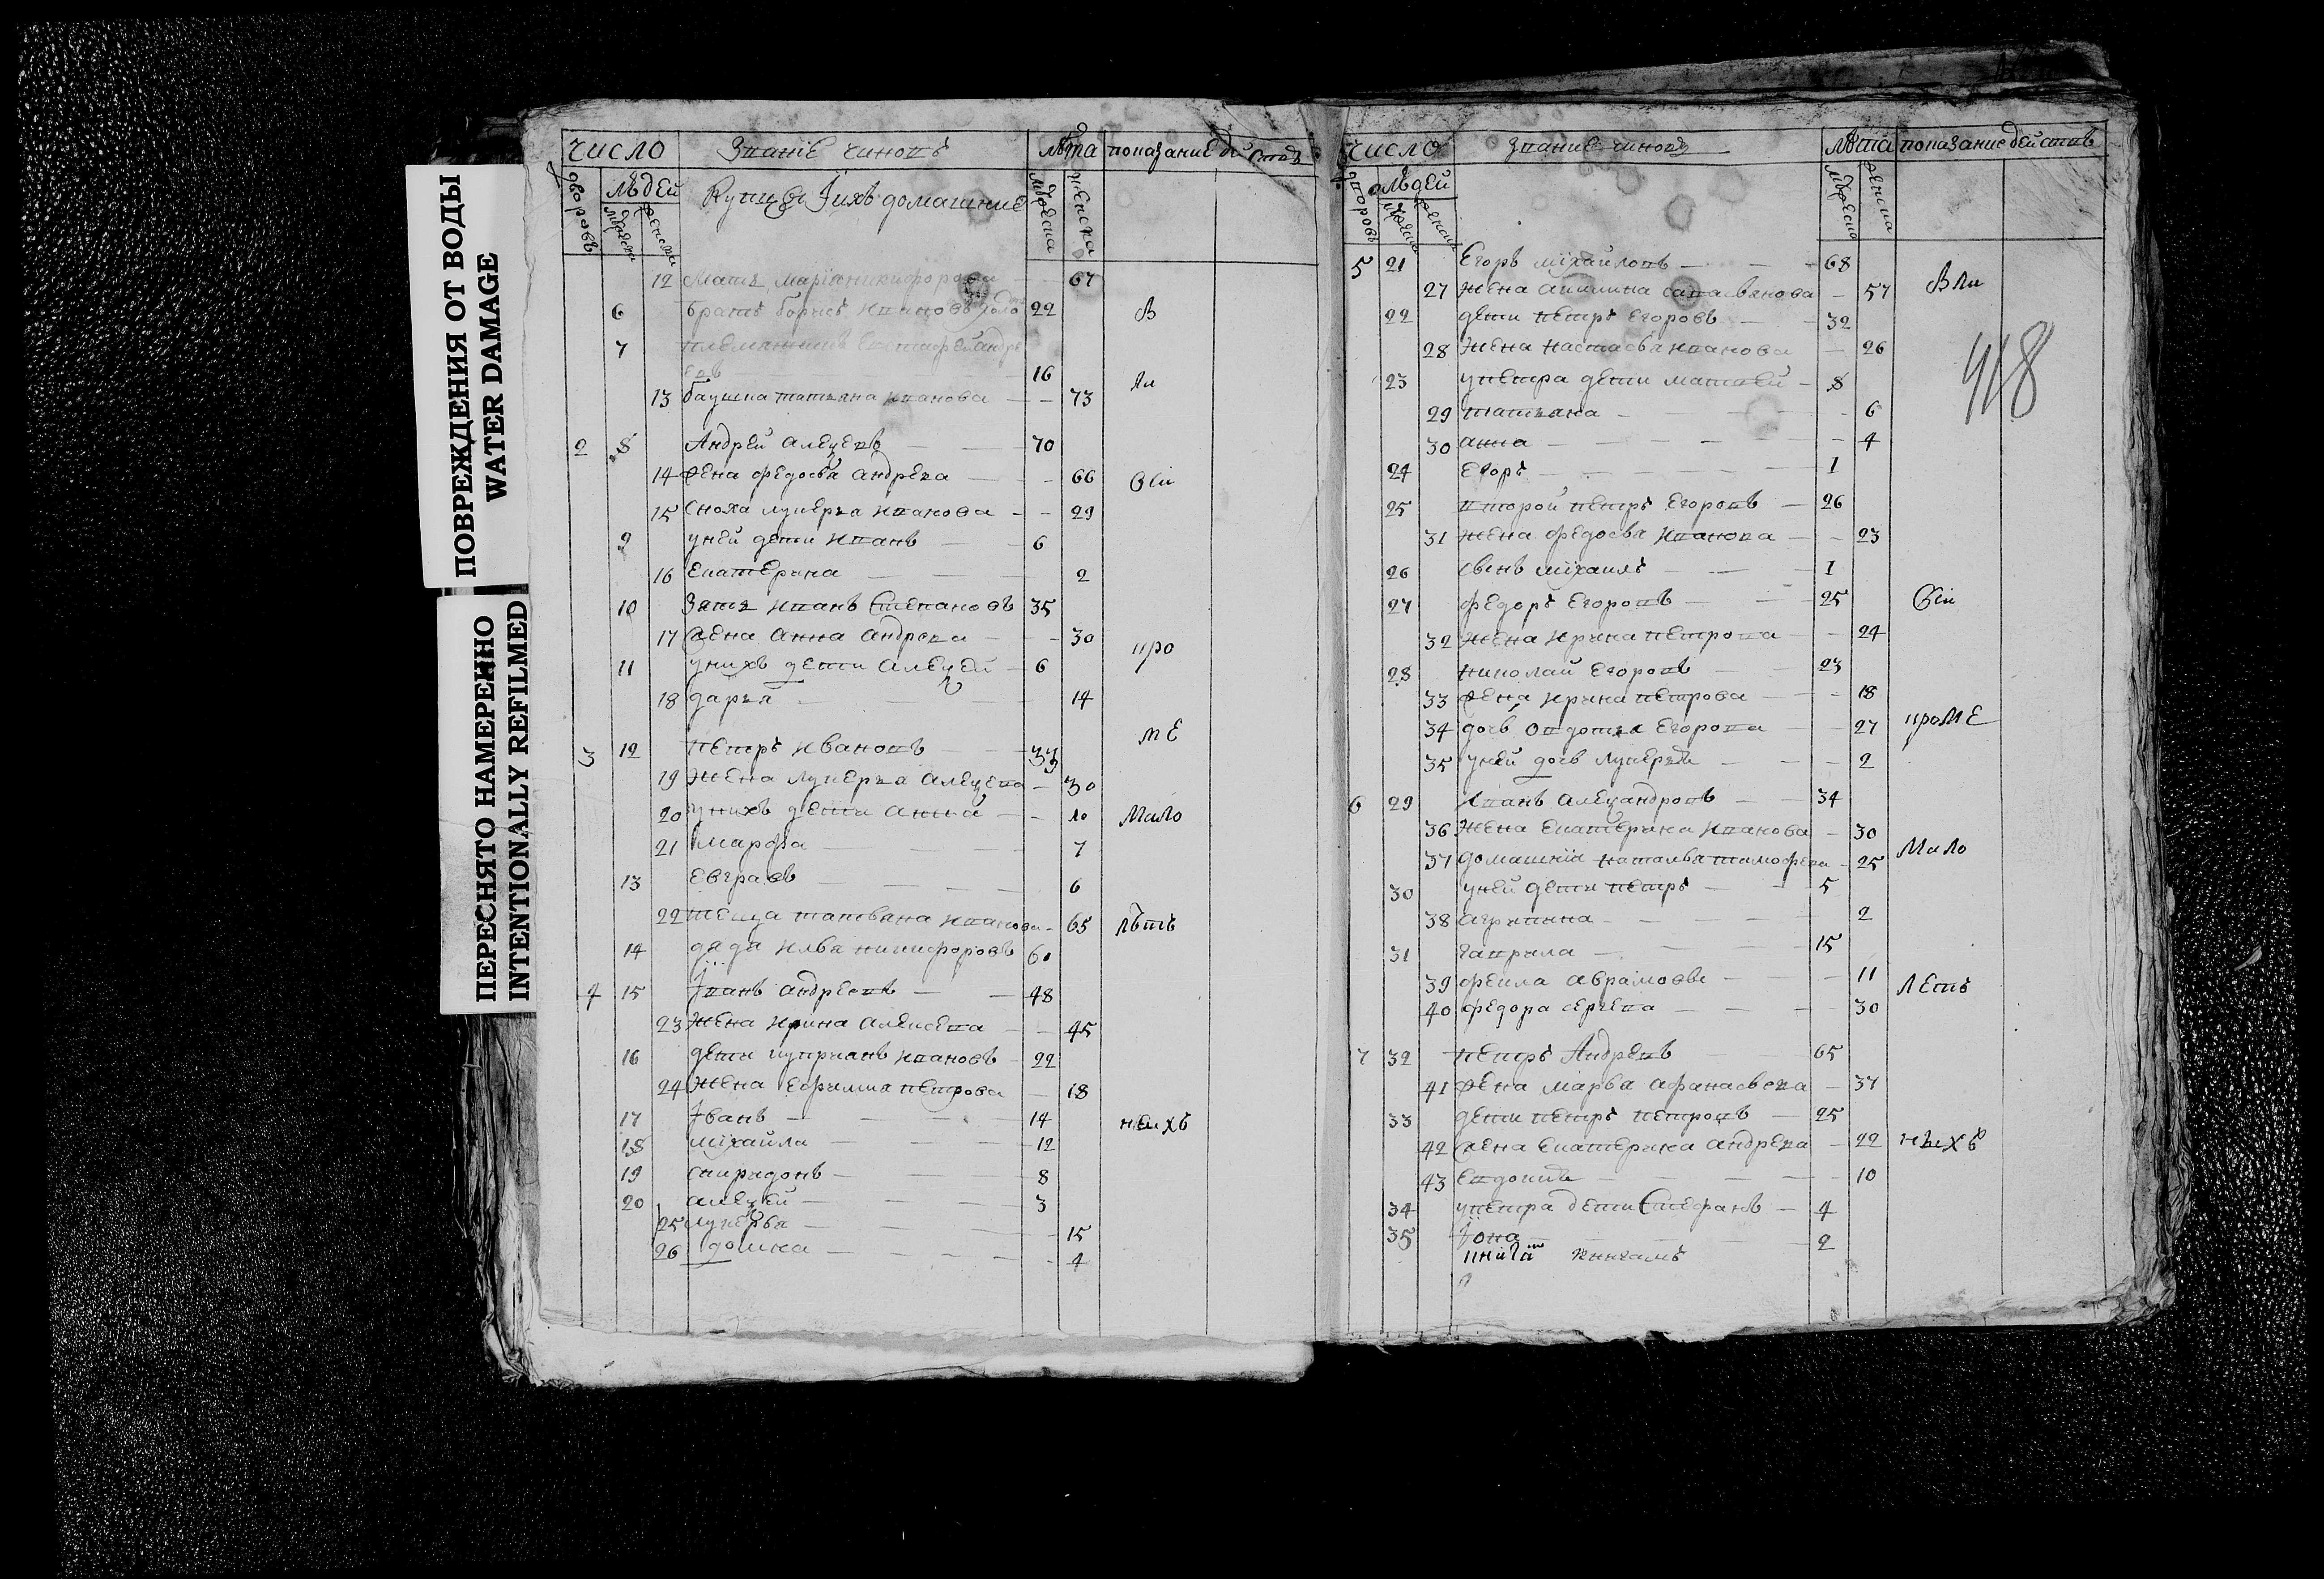 ПОВРЕЖДЕНИЯ ОТ ВОДЫ
WATER DAMAGE
ПЕРЕСНЯТО НАМЕРЕННО
INTENTIONALLY REFILMED
число Званiе чиновъ лѣта показание действъ
дворовъ людей Купцы iихъ домашние мужеска женска
мужеска женска
12 Мать марiя никифорова 67
6 братъ борисъ ивановъ 22 В
7 племянникъ андре
евъ 16 ли
13 баушка татьяна иванова 73
2 8 Андрей алеѯевъ 70
14 жена федосья андрева 66 Сеи
15 сноха лукерья иванова 29
9 уней дети иванъ 6
16 екатерина 2
10 Зять иванъ степановъ 35
17 жена анна андрева 30 про
11 унихъ дети алеѯей 6
18 дарья 14
3 12 петръ ивановъ 33 ме
19 жена лукерья алеѯева 30
20 унихъ дети анна 10 мало
21 марфа 7
13 евграѳъ 6
22 теща татьяна иванова 65 лѣтъ
14 дядя илья никифоровъ 60
4 15 Iванъ андреевъ 48
23 жена ирина алексева 45
16 дети куприанъ ивановъ 22
24 жена ефимия петрова 18
17 Iванъ 14 нихъ
18 мiхайла 12
19 спиридонъ 8
20 алеѯей 3
25 лукерья 15
26 домна 4
число звание чиновъ лѣта показание действъ
дворовъ людей мужеска женска
мужеска женска
5 21 Егоръ мiхайловъ 68
27 жена акилина 57 Вли
22 дети петръ егоровъ 32
28 жена настасья иванова 26
418
23 упетра дети матвей 8
29 татьяна 6
30 анна 4
24 егоръ 1
25 второй петръ егоровъ 26
31 жена федосья иванова 23
26 сынъ мiхаилъ 1
27 федоръ егоровъ 25 Сеи
32 жена ирина петрова 24
28 николай егоровъ 23
33 жена ирина петрова 18
34 дочь овдотья егорова 27 проме
35 уней дочь лукерья 2
6 29 Iванъ алеѯандровъ 34
36 жена екатерина иванова 30
37 домашнiя наталья тимофева 25 мало
30 уней дети петръ 5
38 агрипина 2
31 гаврила 15
39 фекла аврамова 11 летъ
40 федора сергева 30
7 32 петръ Андревъ 65
41 жена марья афанасьева 37
33 дети петръ петровъ 25
42 жена екатерина андрева 22 нихъ
43 евдокия 10
34 упетра дети стефанъ 4
35 Iона 2
книга